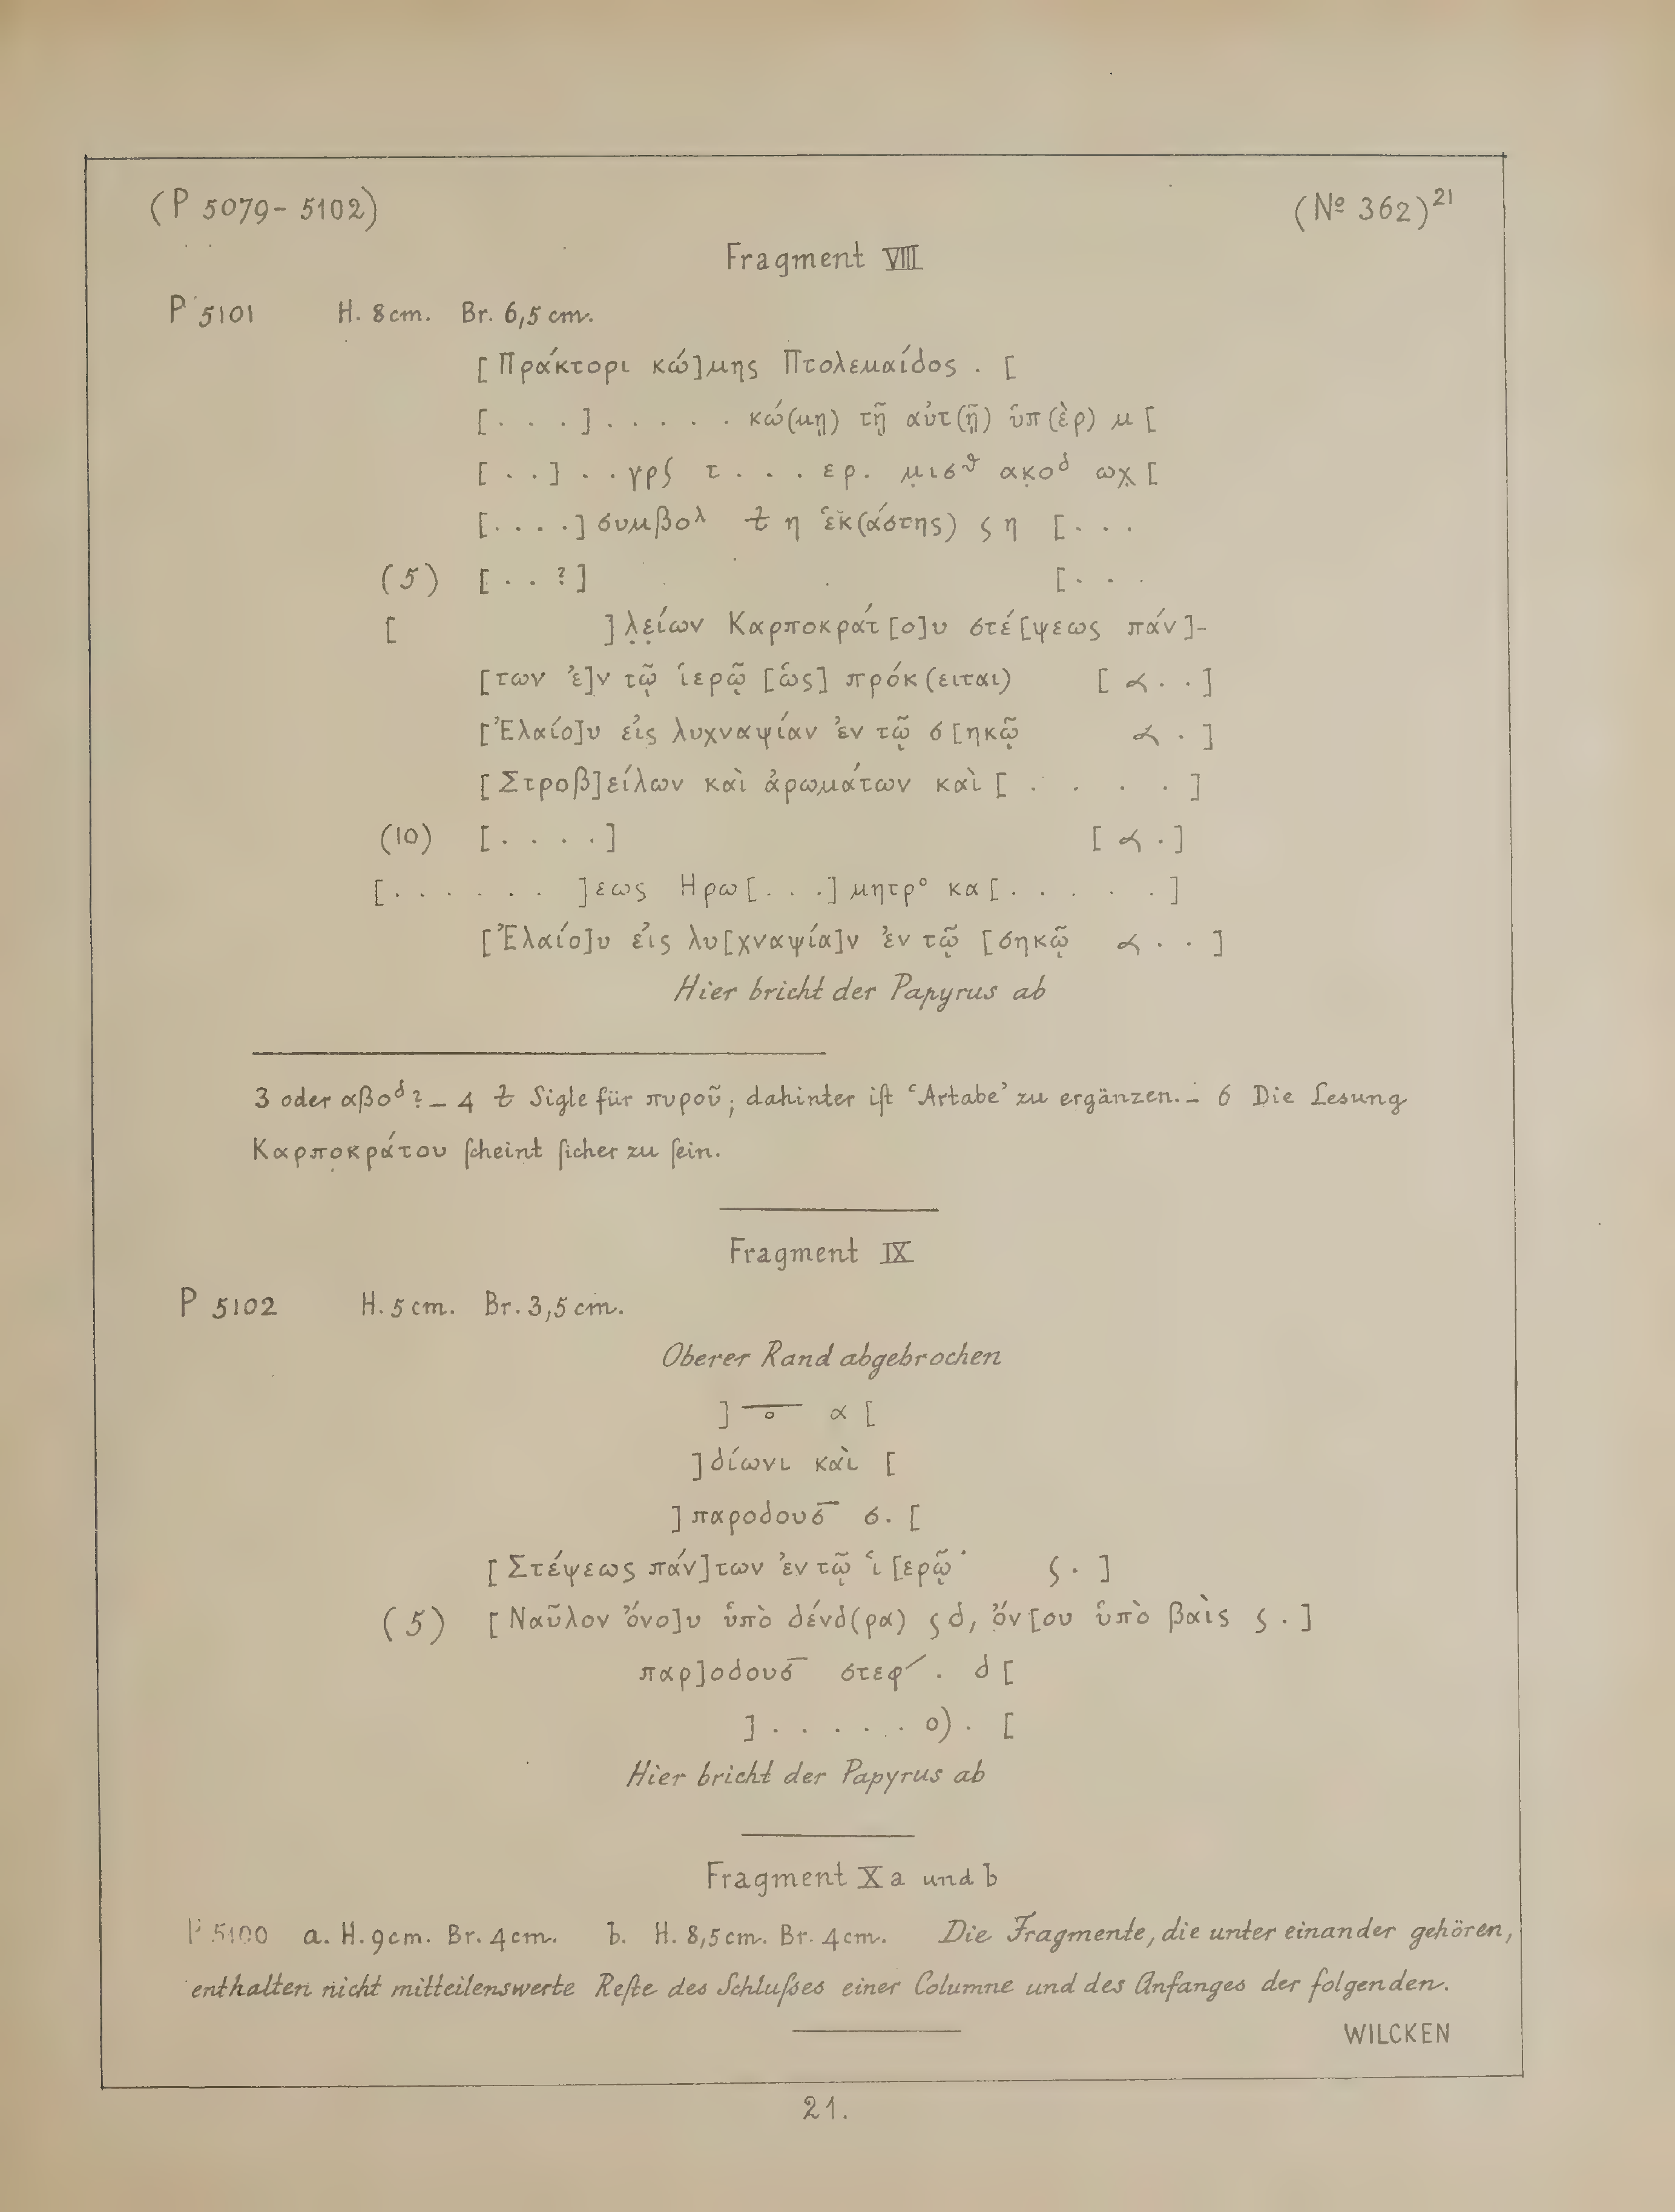 (P 5079-5102) (№ 362)²¹
Fragment VIII
P 5101 H. 8cm. Br. 6,5 cm.
[Πράκτορι κώ]μης Πτολεμαίδος . [
[. . .] . . . . . κώ(μῃ) τῇ αὐτ(ῇ) ὑπ(ὲρ) μ [
[. .] . . γρʃ τ . . . ερ. μ̣ισ^θ ακ̣ο^δ ωχ̣ [
[. . . .] συμβο^λ ⳁ η ἑκ(άστης) ς η [. . .
(5) [. . ?] [. . .
[ ]λ̣ε̣ίων Καρποκράτ[ο]υ στέ[ψεως πάν]-
[των ἐ]ν τῷ ἱερῷ [ὡς] πρόκ(ειται) [ 𐅻 . . ]
[Ἐλαίο]υ εἰς λυχναψίαν ἐν τῷ σ[ηκῷ 𐅻 . ]
[Στροβ]είλων καὶ ἀρωμάτων καὶ [ . . . . ]
(10) [. . . .] [ 𐅻 . ]
[. . . . . . ]εως Ηρω[. . .] μητρ° κα[. . . . . ]
[Ἐλαίο]υ εἰς λυ[χναψία]ν ἐν τῷ [σηκῷ 𐅻 . . ]
Hier bricht der Papyrus ab
3 oder αβο^δ? – 4 ⳁ Sigle für πυροῦ; dahinter iſt ‘Artabe’ zu ergänzen. – 6 Die Leſung
Καρπο̣κράτου ſcheint ſicher zu ſein.
Fragment IX
P 5102 H. 5 cm. Br. 3,5 cm.
Oberer Rand abgebrochen
] ō α [
]δίωνι καὶ [
] παροδουσ̅ σ. [
[Στέψεως πάν]των ἐν τῷ ἱ[ερῷ ς . ]
(5) [Ναῦλον ὄνο]υ ὑπὸ δένδ(ρα) ς δ, ὄν[ου ὑπὸ βαὶς ς . ]
παρ]οδουσ̅ στεφ⸍ . δ [
] . . . . . ο) . [
Hier bricht der Papyrus ab
Fragment X a und b
P 5100 a. H. 9cm. Br. 4cm. b. H. 8,5cm. Br. 4cm. Die Fragmente, die unter einander gehören,
enthalten nicht mitteilenswerte Reſte des Schluſses einer Columne und des Anfanges der folgenden.
WILCKEN
21.